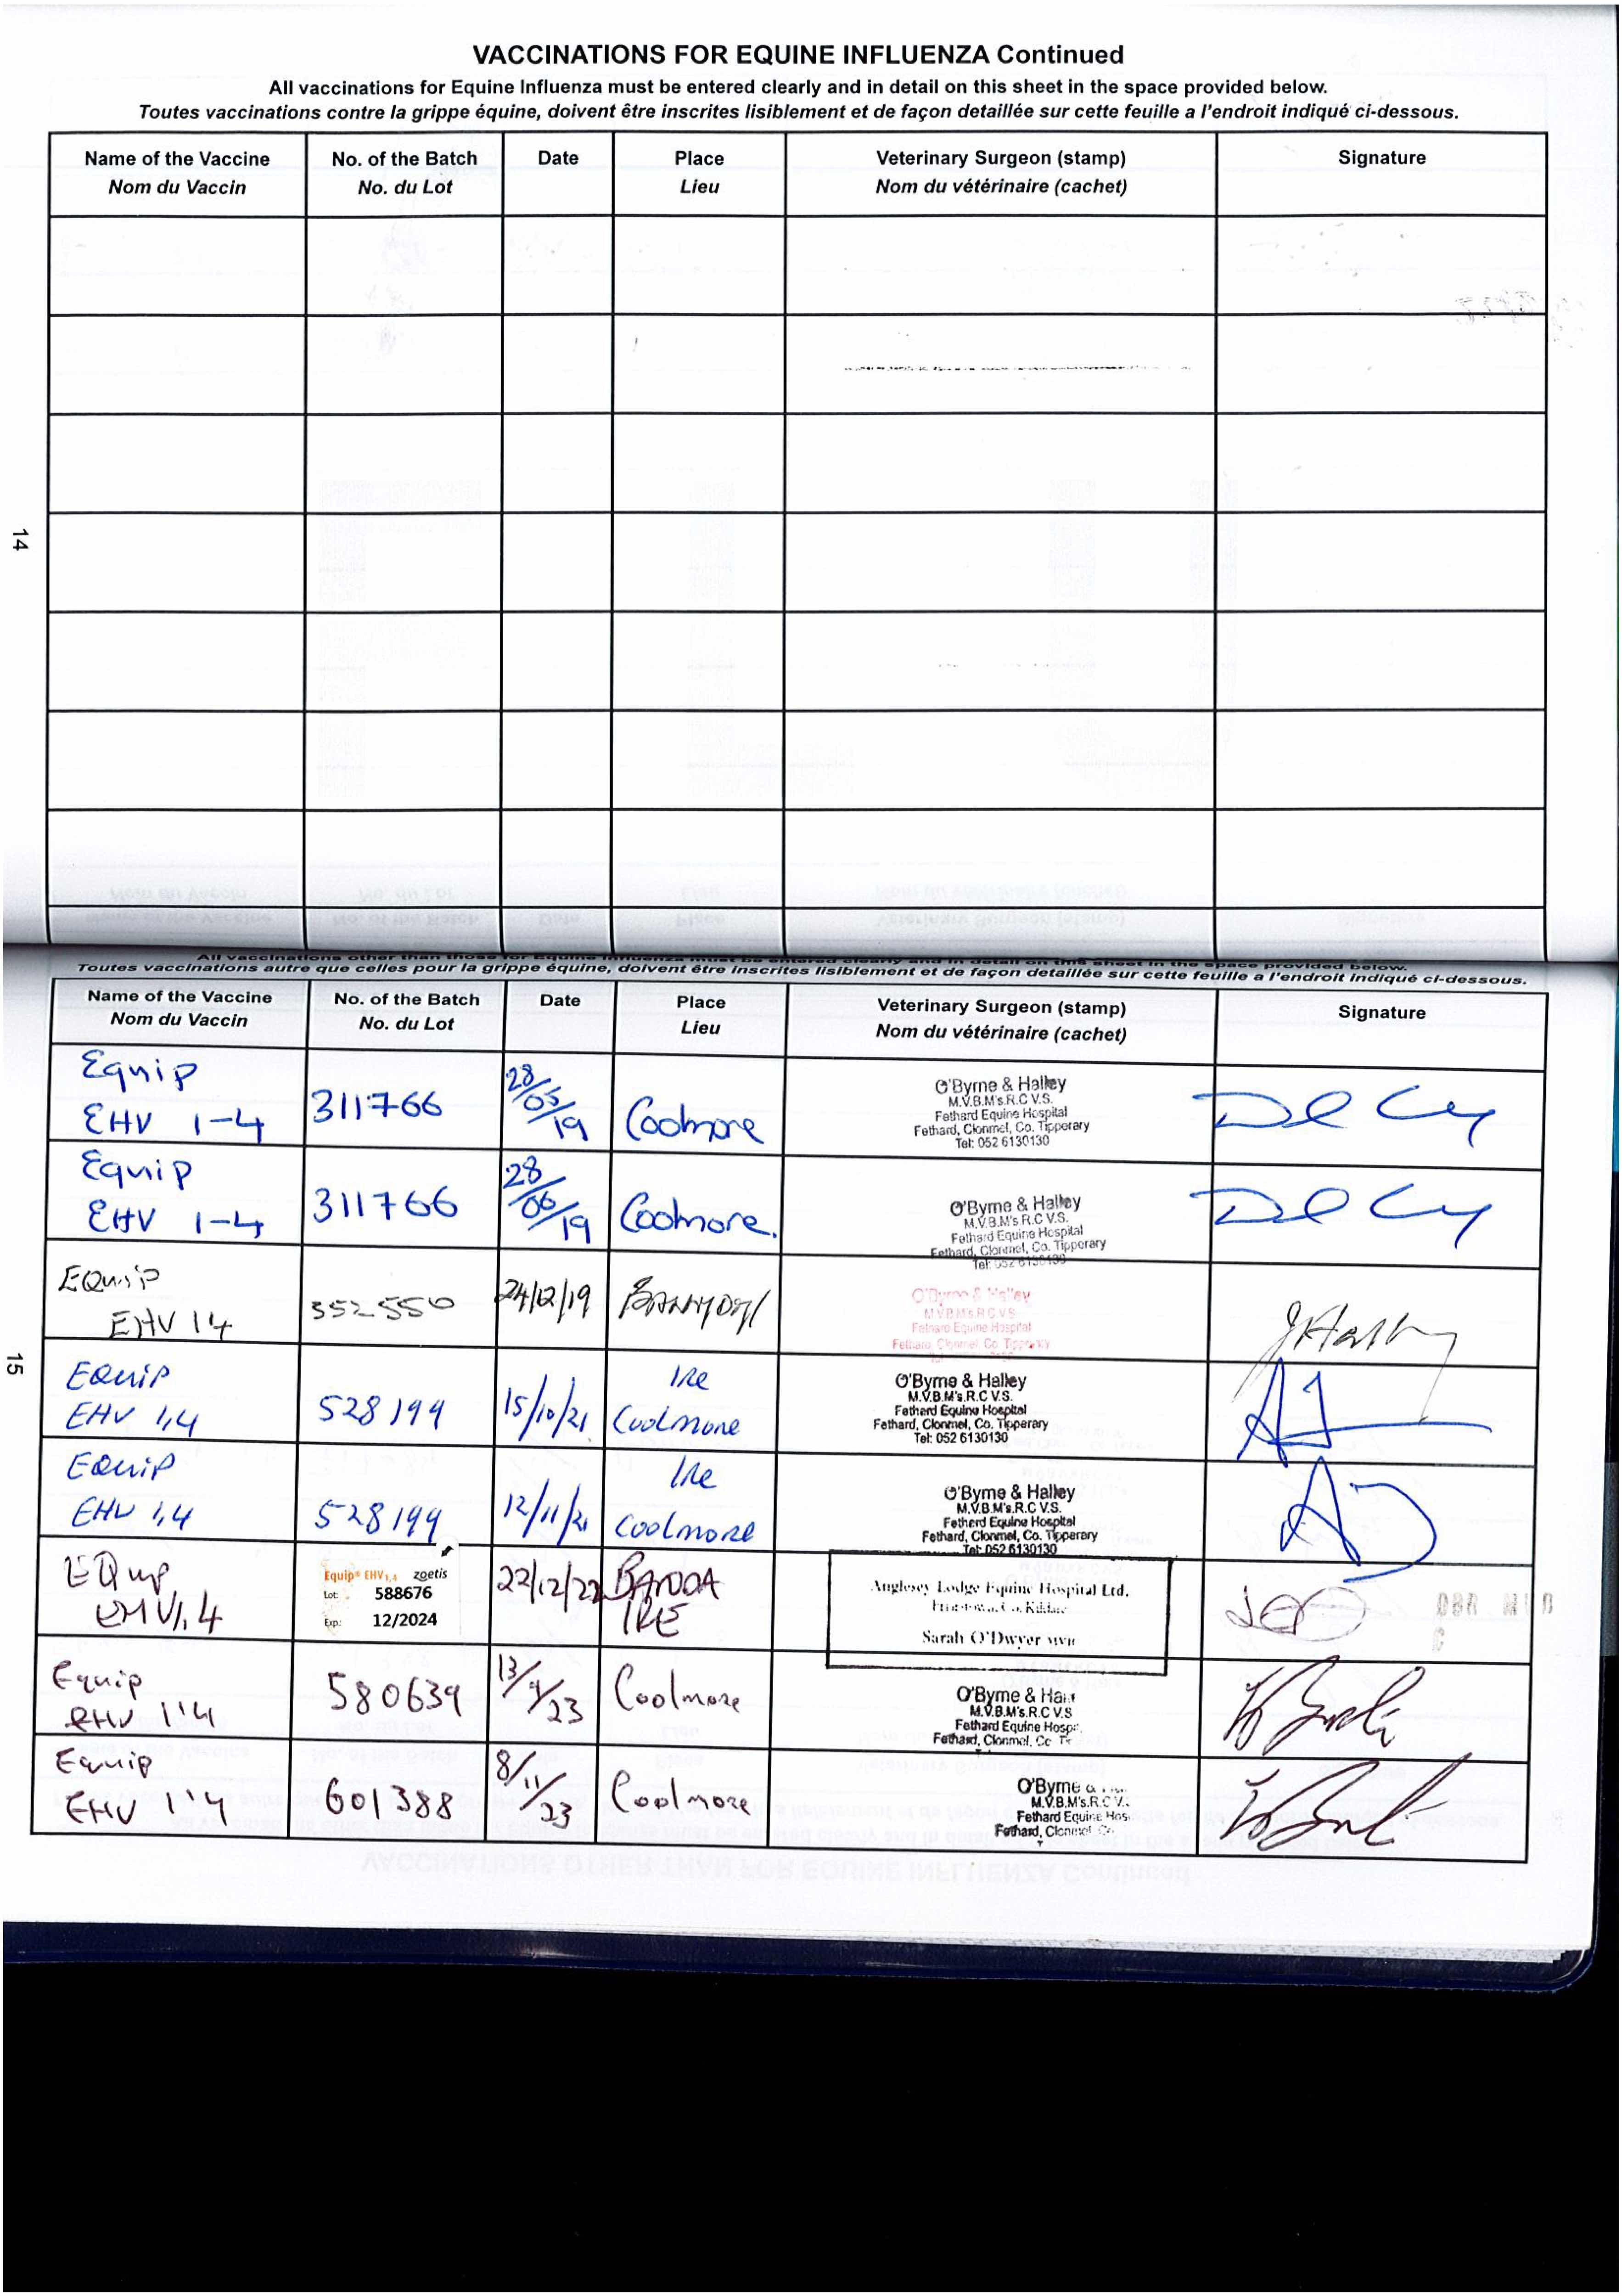 VACCINATIONS FOR EQUINE INFLUENZA Continued
All vaccinations for Equine Influenza must be entered clearly and in detail on this sheet in the space provided below.
Toutes vaccinations contre la grippe équine, doivent être inscrites lisiblement et de façon detaillée sur cette feuille a l'endroit indiqué ci-dessous.
Name of the Vaccine No. of the Batch Date Place Veterinary Surgeon (stamp) Signature
Nom du Vaccin No. du Lot Lieu Nom du vétérinaire (cachet)
14
All vaccinations other than those for Equine Influenza must be entered clearly and in detail on this sheet in the space provided below.
Toutes vaccinations autre que celles pour la grippe équine, doivent être inscrites lisiblement et de façon detaillée sur cette feuille a l'endroit indiqué ci-dessous.
Name of the Vaccine No. of the Batch Date Place Veterinary Surgeon (stamp) Signature
Nom du Vaccin No. du Lot Lieu Nom du vétérinaire (cachet)
Equip
EHV 1-4
311766
28/05/19
Coolmore
O'Byrne & Halley
M.V.B.M's.R.C.V.S.
Fethard Equine Hospital
Fethard, Clonmel, Co. Tipperary
Tel: 052 6130130
Equip
EHV 1-4
311766
28/06/19
Coolmore.
O'Byrne & Halley
M.V.B.M's R.C.V.S.
Fethard Equine Hospital
Fethard, Clonmel, Co. Tipperary
Tel: 052 6130130
EQuip
EHV 14
352550
24/12/19
O'Byrne & Halley
M.V.B.M's R.C.V.S.
Fethard Equine Hospital
Fethard, Clonmel, Co. Tipperary
15
EQuip
EHV 1,4
528199
15/10/21
Ire
Coolmore
O'Byrne & Halley
M.V.B.M's.R.C.V.S.
Fethard Equine Hospital
Fethard, Clonmel, Co. Tipperary
Tel: 052 6130130
EQuip
EHV 1,4
528199
12/11/21
Ire
Coolmore
O'Byrne & Halley
M.V.B.M's.R.C.V.S.
Fethard Equine Hospital
Fethard, Clonmel, Co. Tipperary
Tel: 052 6130130
EQuip
EHV1,4
Equip® EHV1,4 zoetis
Lot: 588676
Exp: 12/2024
22/12/22
IRE
Anglesey Lodge Equine Hospital Ltd.
Co. Kildare
Sarah O'Dwyer MVB
Equip
EHV 1'4
580639
13/9/23
Coolmore
O'Byrne &
M.V.B.M's.R.C.V.S
Fethard Equine Hosp
Fethard, Clonmel, Co
Equip
EHV 1'4
601388
8/11/23
Coolmore
O'Byrne &
M.V.B.M's.R.C.V.
Fethard Equine Hos
Fethard, Clonmel Co